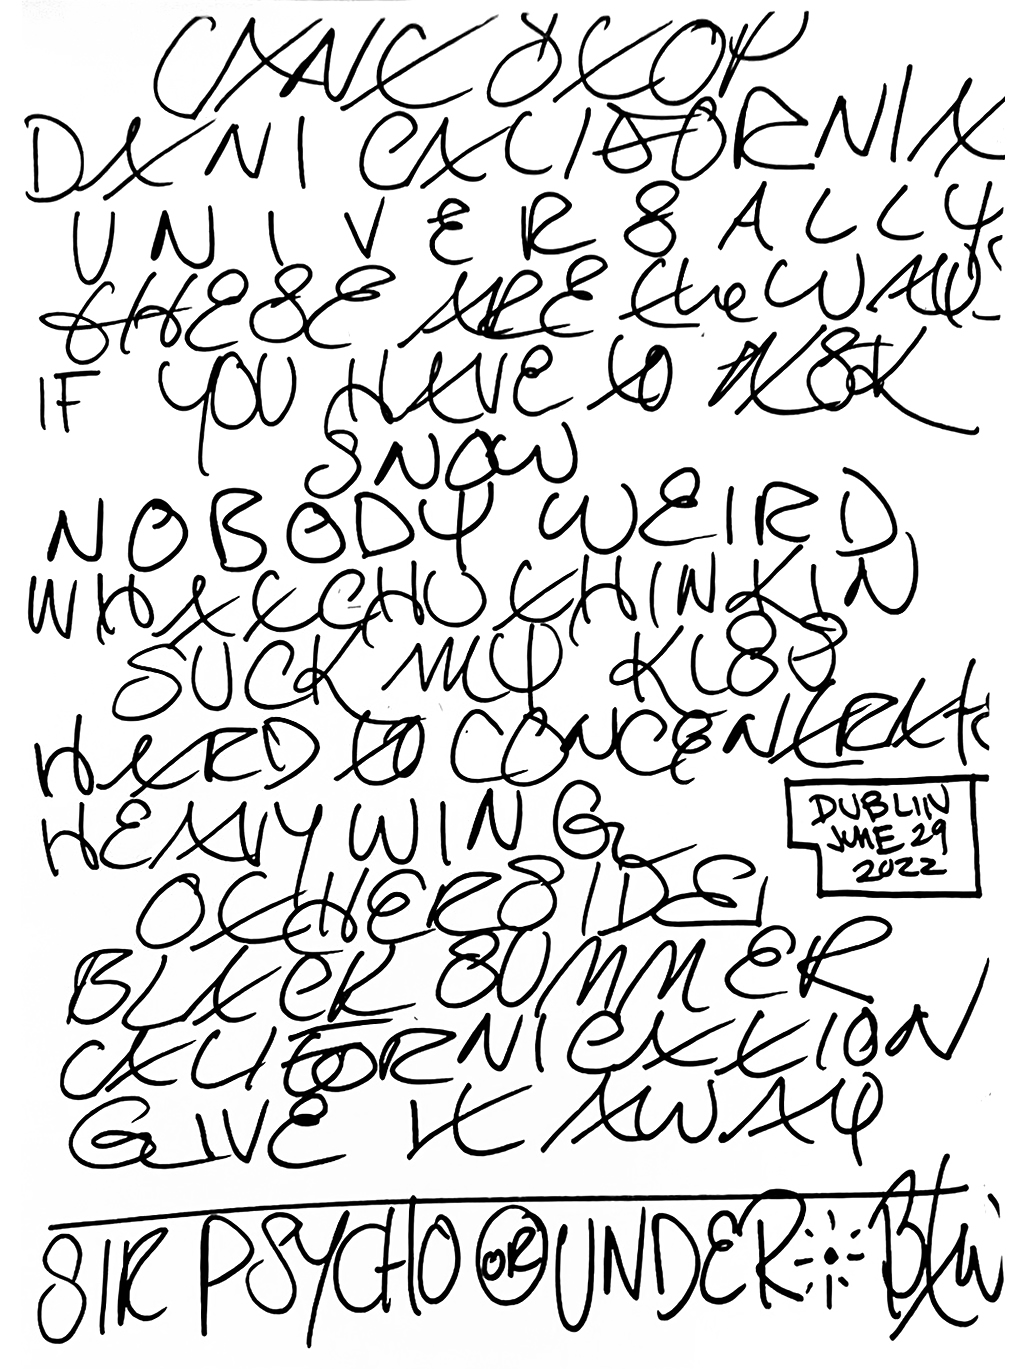 CANT STOP
DANI CALIFORNIA
UNIVERSALLY S
THESE ARE the WAYS
IF YOU HAVE TO ASK
SNOW
NOBODY WEIRD
WHATCHU THINKIN
SUCK MY KISS
HARD TO CONCENTRATE
HEAVY WING
OTHERSIDE
BLACK SUMMER
CALIFORNICATION
GIVE IT AWAY
DUBLIN
JUNE 29
2022
SIR PSYCHO OR UNDER